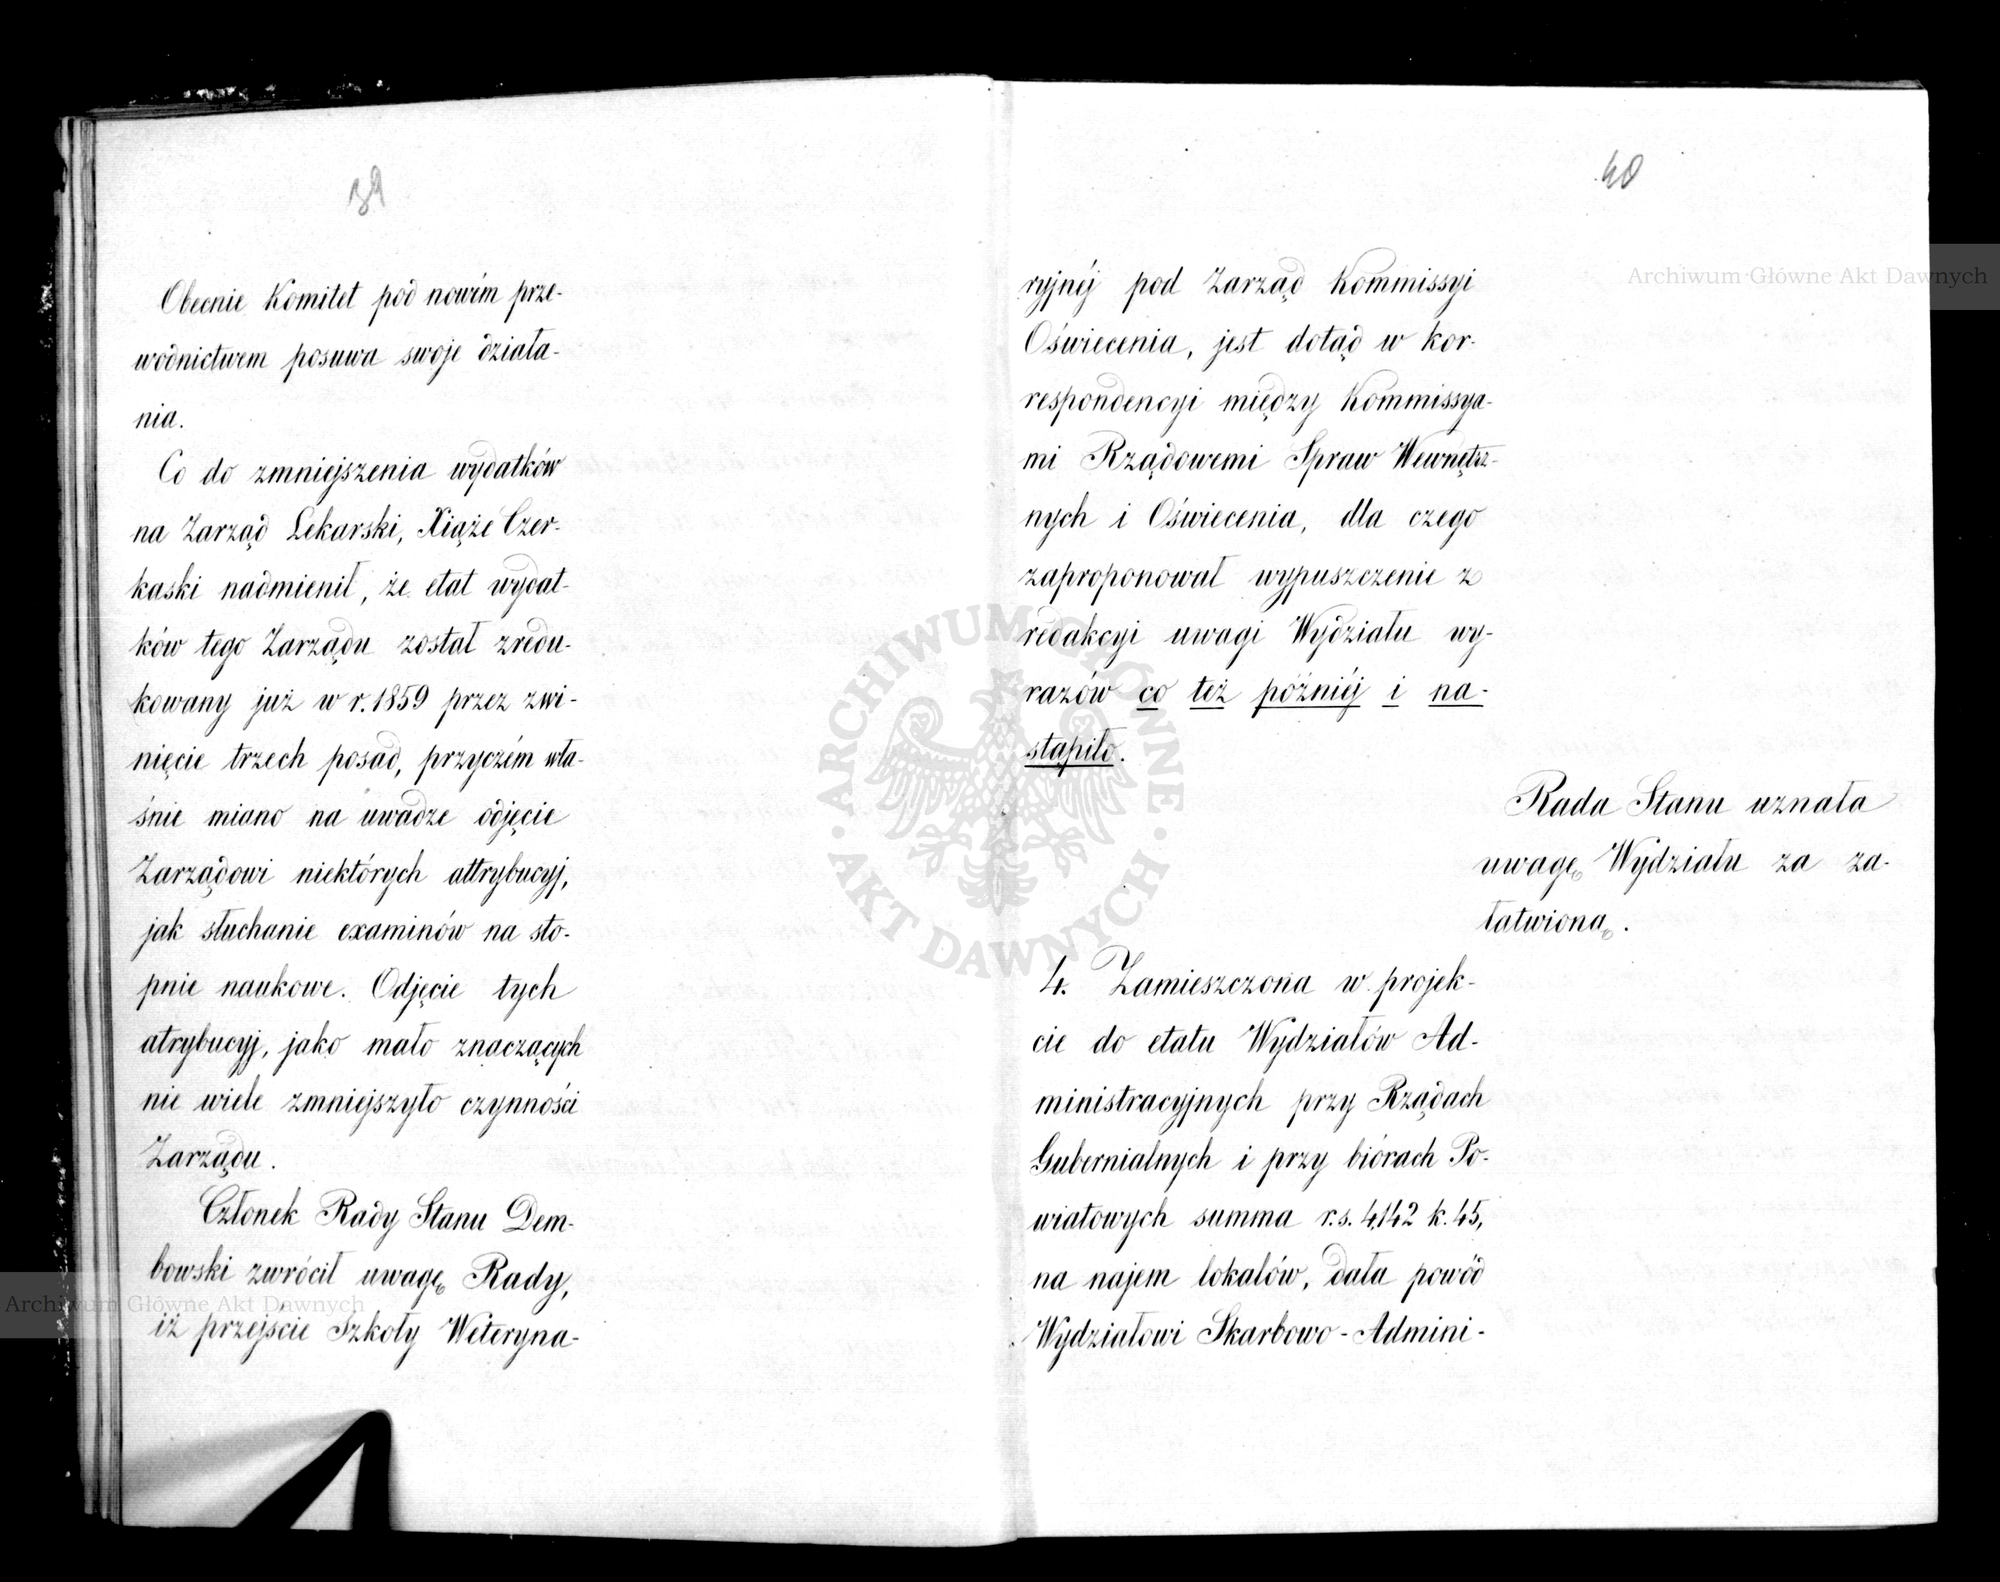 39
Obecnie Komitet pod nowém prze-
wodnictwem posuwa swoje działa-
nia.
Co do zmniejszenia wydatków
na Zarząd Lekarski, Xiąże Czer-
kaski nadmienił, że etat wydat-
ków tego Zarządu został zredu-
kowany już w r. 1859 przez zwi-
nięcie trzech posad, przyczém wła-
śnie miano na uwadze odjęcie
Zarządowi niektórych attrybucyj,
jak słuchanie examinów na sto-
pnie naukowe. Odjęcie tych
atrybucyj, jako mało znaczących
nie wiele zmniejszyło czynności
Zarządu.
Członek Rady Stanu Dem-
bowski zwrócił uwagę Rady,
iż przejście Szkoły Weteryna-
40
ryjnéj pod Zarząd Kommissyi
Oświecenia, jest dotąd w kor-
respondencyi między Kommissya-
mi Rządowemi Spraw Wewnętrz-
nych i Oświecenia, dla czego
zaproponował wypuszczenie z
redakcyi uwagi Wydziału wy-
razów co też późniéj i na-
stąpiło.
Rada Stanu uznała
uwagę Wydziału za za-
łatwioną.
4. Zamieszczona w projek-
cie do etatu Wydziałów Ad-
ministracyjnych przy Rządach
Gubernialnych i przy biórach Po-
wiatowych summa r.s. 4,142 k. 45,
na najem lokalów, dała powód
Wydziałowi Skarbowo-Admini-
Archiwum Główne Akt Dawnych
Archiwum Główne Akt Dawnych
ARCHIWUM GŁÓWNE
AKT DAWNYCH